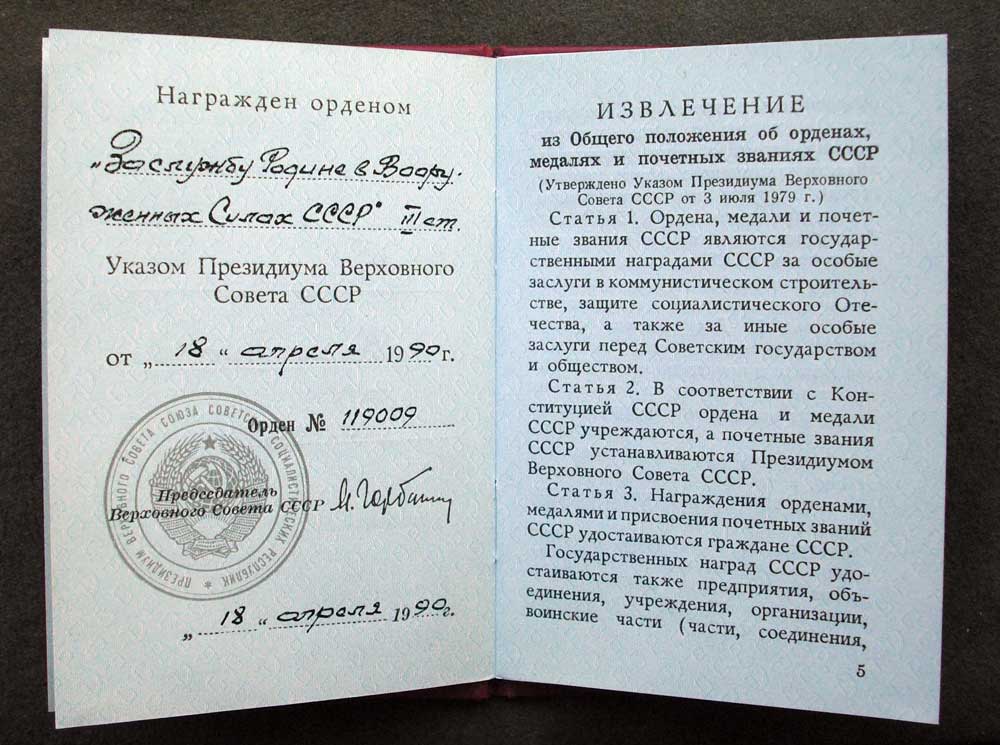 Награжден орденом
„За службу Родине в Воору-
женных Силах СССР" III ст.
Указом Президиума Верховного
Совета СССР
от „18" апреля 1990 г.
Орден № 119009
Председатель
Верховного Совета СССР М. Горбачев
ПРЕЗИДИУМ ВЕРХОВНОГО СОВЕТА СОЮЗА СОВЕТСКИХ СОЦИАЛИСТИЧЕСКИХ РЕСПУБЛИК *
„18" апреля 1990 г.
ИЗВЛЕЧЕНИЕ
из Общего положения об орденах,
медалях и почетных званиях СССР
(Утверждено Указом Президиума Верховного
Совета СССР от 3 июля 1979 г.)
Статья 1. Ордена, медали и почет-
ные звания СССР являются государ-
ственными наградами СССР за особые
заслуги в коммунистическом строитель-
стве, защите социалистического Оте-
чества, а также за иные особые
заслуги перед Советским государством
и обществом.
Статья 2. В соответствии с Кон-
ституцией СССР ордена и медали
СССР учреждаются, а почетные звания
СССР устанавливаются Президиумом
Верховного Совета СССР.
Статья 3. Награждения орденами,
медалями и присвоения почетных званий
СССР удостаиваются граждане СССР.
Государственных наград СССР удо-
стаиваются также предприятия, объ-
единения, учреждения, организации,
воинские части (части, соединения,
5